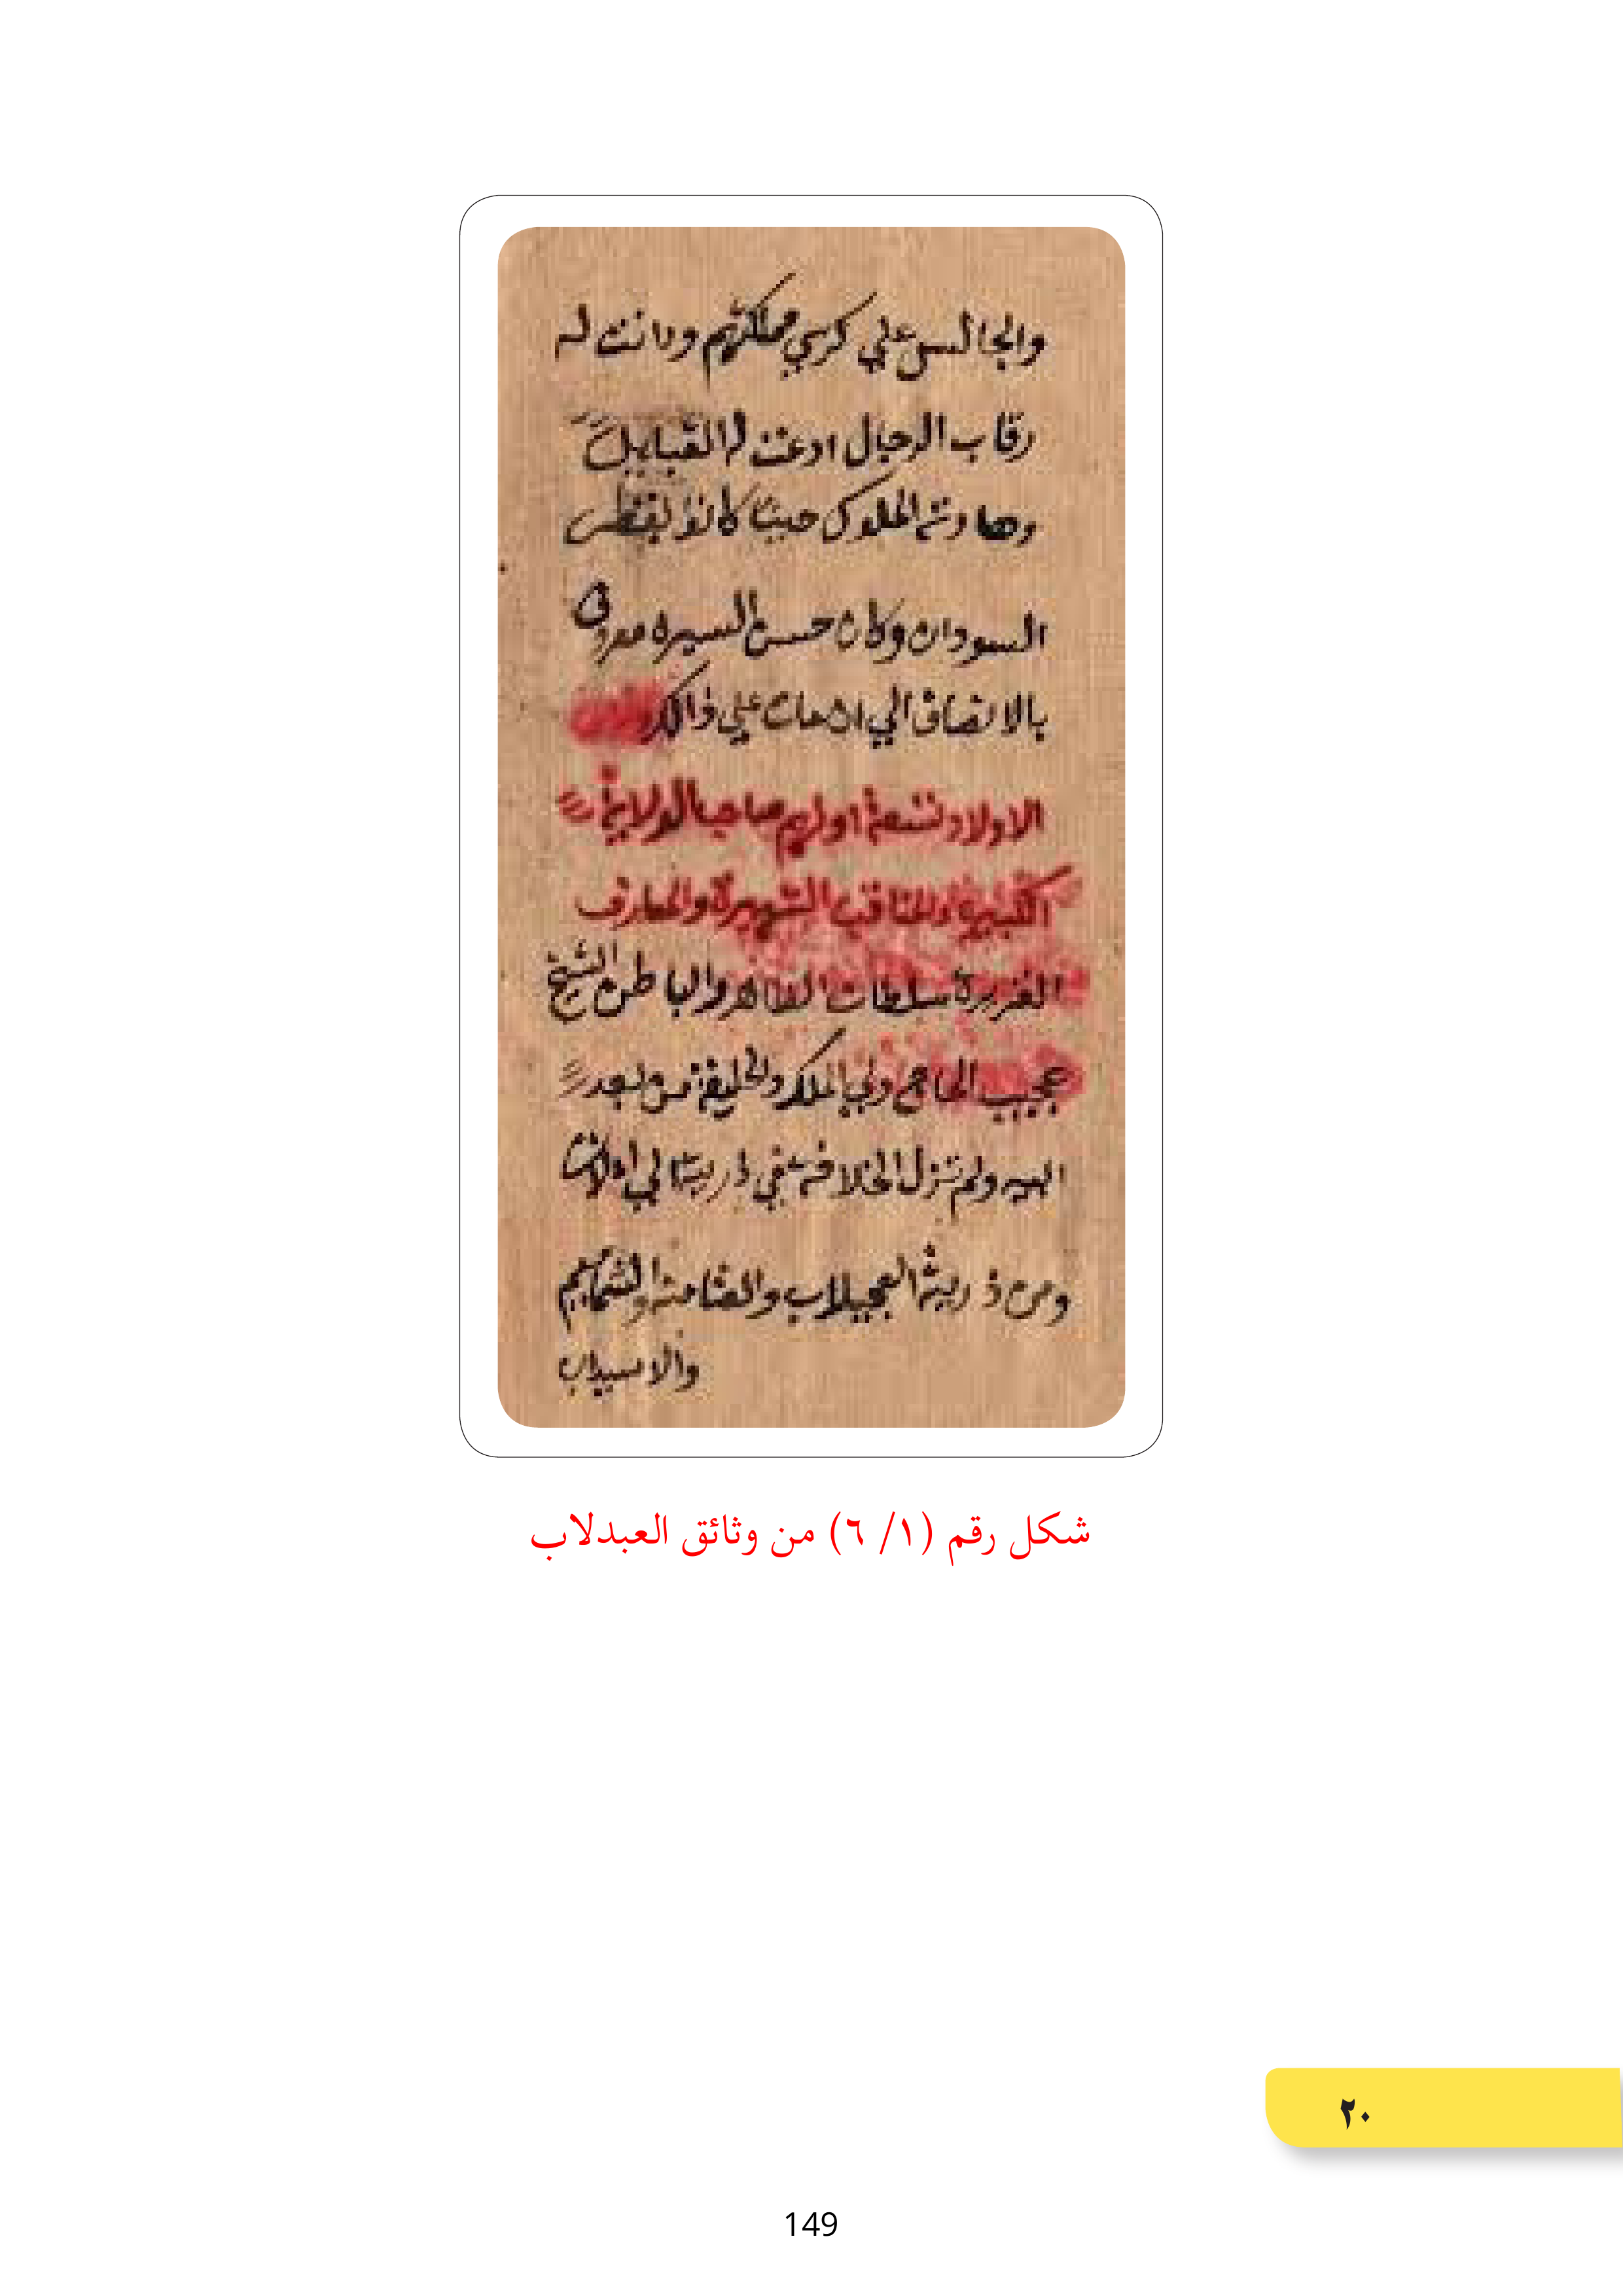 والجالس علي كرسي مملكتهم ودانت له
رقاب الرجال القبايل
وهادته الملوك
السودان وكان حسن السيره
بالانصاف الي ان مات علي ذالك
الاولاد تسعة اولهم صاحب الولاية
الكبيرة والمناقب الشهيرة والمعارف
الغزيرة سلطان الظاهر والباطن الشيخ
عجيب الحاج ولي الملك والخليفة من بعد
ابيه ولم تزل الخلافة في ذريته الي الان
ومن ذريته العجيلاب والعثامنه
والاسيداب
شكل رقم (١/ ٦) من وثائق العبدلاب
٢٠
149